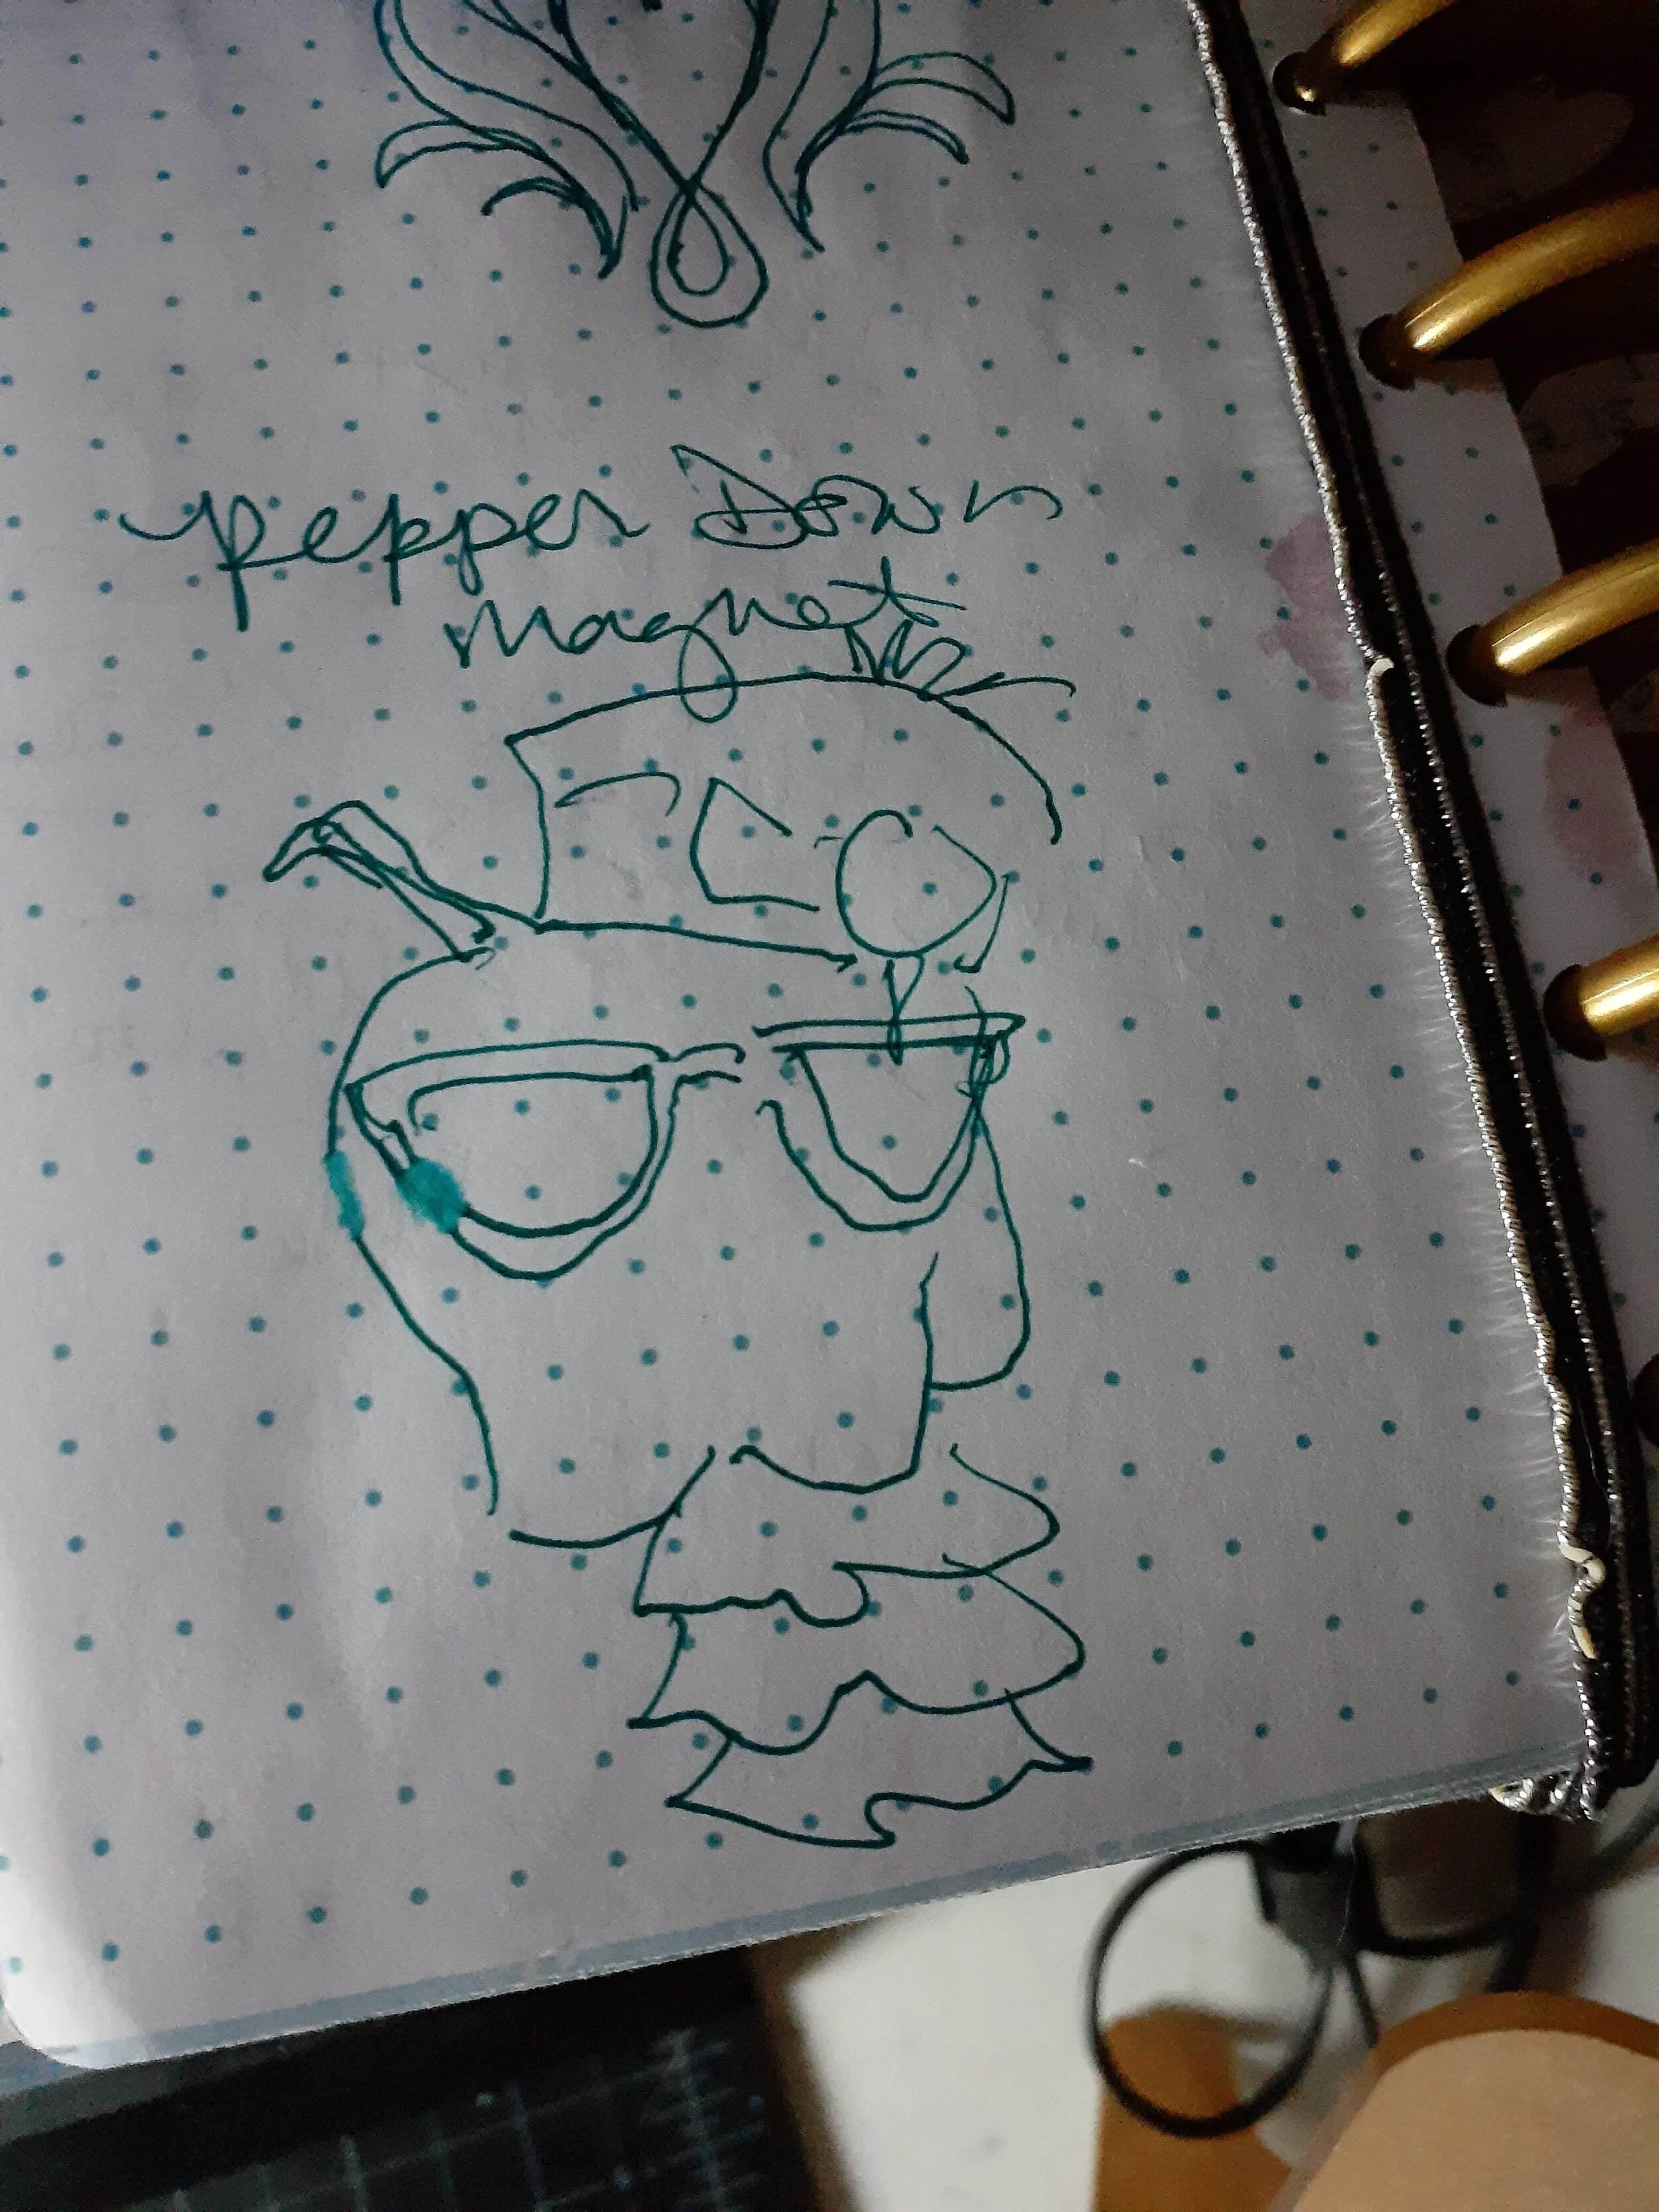 pepper Down
magnet